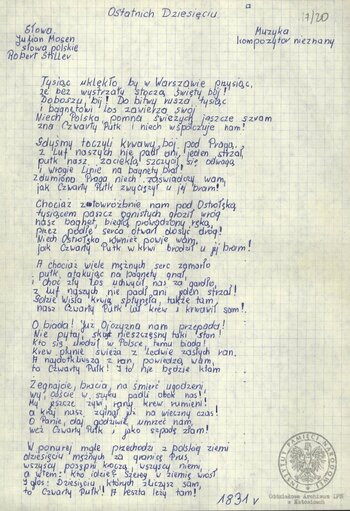 17/20
Ostatnich Dziesięciu
Słowa
Julian Mosen
słowa polskie
Robert Stiller
Muzyka
kompozytor nieznany
Tysiąc uklękło by w Warszawie przysiąc,
że bez wystrzału stoczą święty bój!
Doboszu, bij! Do bitwy rusza tysiąc
i bagnetowi los zawierza swój
Niech Polska pomna świeżych jeszcze szram
zna Czwarty Pułk i niech współczuje nam!
Gdyśmy toczyli krwawy bój pod Pragą,
z luf naszych nie padł ani jeden strzał,
pułk nasz, zaciekłą szczycąc się odwagą
i wrogie linie na bagnety brał!
Zdumiona Praga niech zaświadczy wam,
jak Czwarty Pułk zwyciężył u jej bram!
Chociaż złowróżbnie nam pod Ostrołęką
tysiącem paszcz ognistych groził wróg
nasz bagnet, biegłą prowadzony ręką,
przez podłe serca otwarł dosyć dróg!
Niech Ostrołęka również powie wam,
jak Czwarty Pułk w krwi brodził u jej bram!
A chociaż wiele mężnych serc zamarło
pułk, atakując na bagnety gnał,
i choć zły los uchwycił nas za gardło,
z luf naszych nie padł ani jeden strzał!
Gdzie Wisła krwią spłynęła, także tam,
nasz Czwarty Pułk lał krew i krwawił sam!
O biada! Już Ojczyzna nam przepada!
Nie pytaj, skąd nieszczęsny taki stan!
kto się urodził w Polsce, temu biada!
Krew płynie świeża z ledwie zasłych ran.
A najdotkliwsza z ran, powiedzą wam,
to Czwarty Pułk! I to nie będzie kłam
Żegnajcie, bracia, na śmierć ugodzeni,
wy, coście w szyku padli obok nas!
My jeszcze żywi, rany krew rumieni!
a kraj nasz zginął już na wieczny czas!
O Panie, daj godziwie umrzeć nam,
weź Czwarty Pułk
W ponurej mgle przechodzi z polskiej ziemi
dziesięciu mężnych za granicę Prus,
wszyscy posępni kroczą, wszyscy niemi,
a wtem: kto idzie? Szereg w ziemię wrósł
I głos: Dziesięciu, których zliczysz sam,
to Czwarty Pułk! A reszta leży tam!
1831 r
INSTYTUT PAMIĘCI NARODOWEJ
Oddziałowe Archiwum IPN
w Katowicach